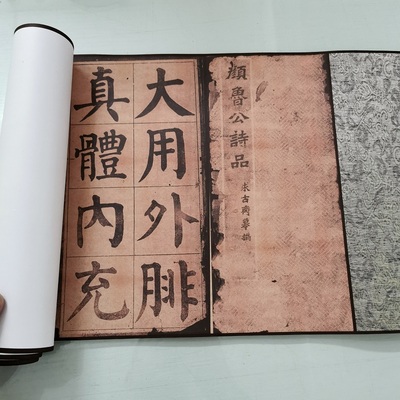 顏魯公詩品
求古齋摹
大用外腓
真體內充